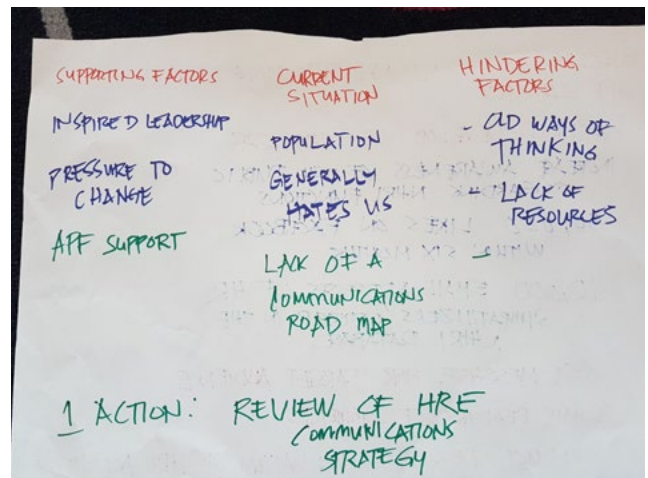 SUPPORTING FACTORS
INSPIRED LEADERSHIP
PRESSURE TO
CHANGE
APF SUPPORT
CURRENT
SITUATION
POPULATION
GENERALLY
HATES US
LACK OF A
COMMUNICATIONS
ROAD MAP
HINDERING
FACTORS
- OLD WAYS OF
THINKING
- LACK OF
RESOURCES
-
1 ACTION: REVIEW OF HRE
COMMUNICATIONS
STRATEGY